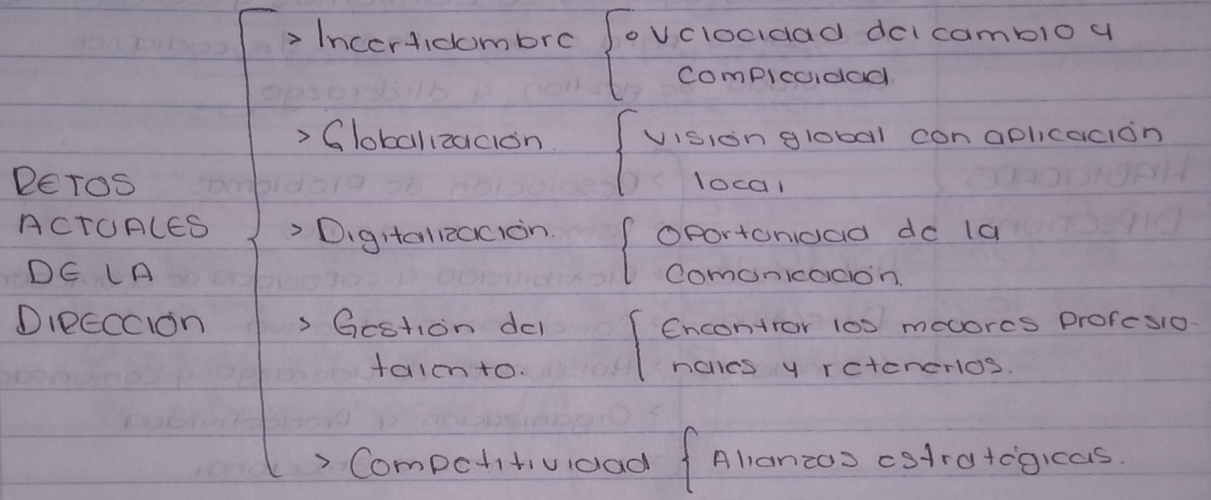 RETOS
ACTUALES
DE LA
DIRECCIÓN
> Incertidumbre
• Velocidad del cambio y
complejidad.
> Globalización.
Visión global con aplicación
local
> Digitalización.
Oportunidad de la
Comunicación.
> Gestión del
talento.
Encontrar los mejores profesio-
nales y retenerlos.
> Competitividad
Alianzas estratégicas.